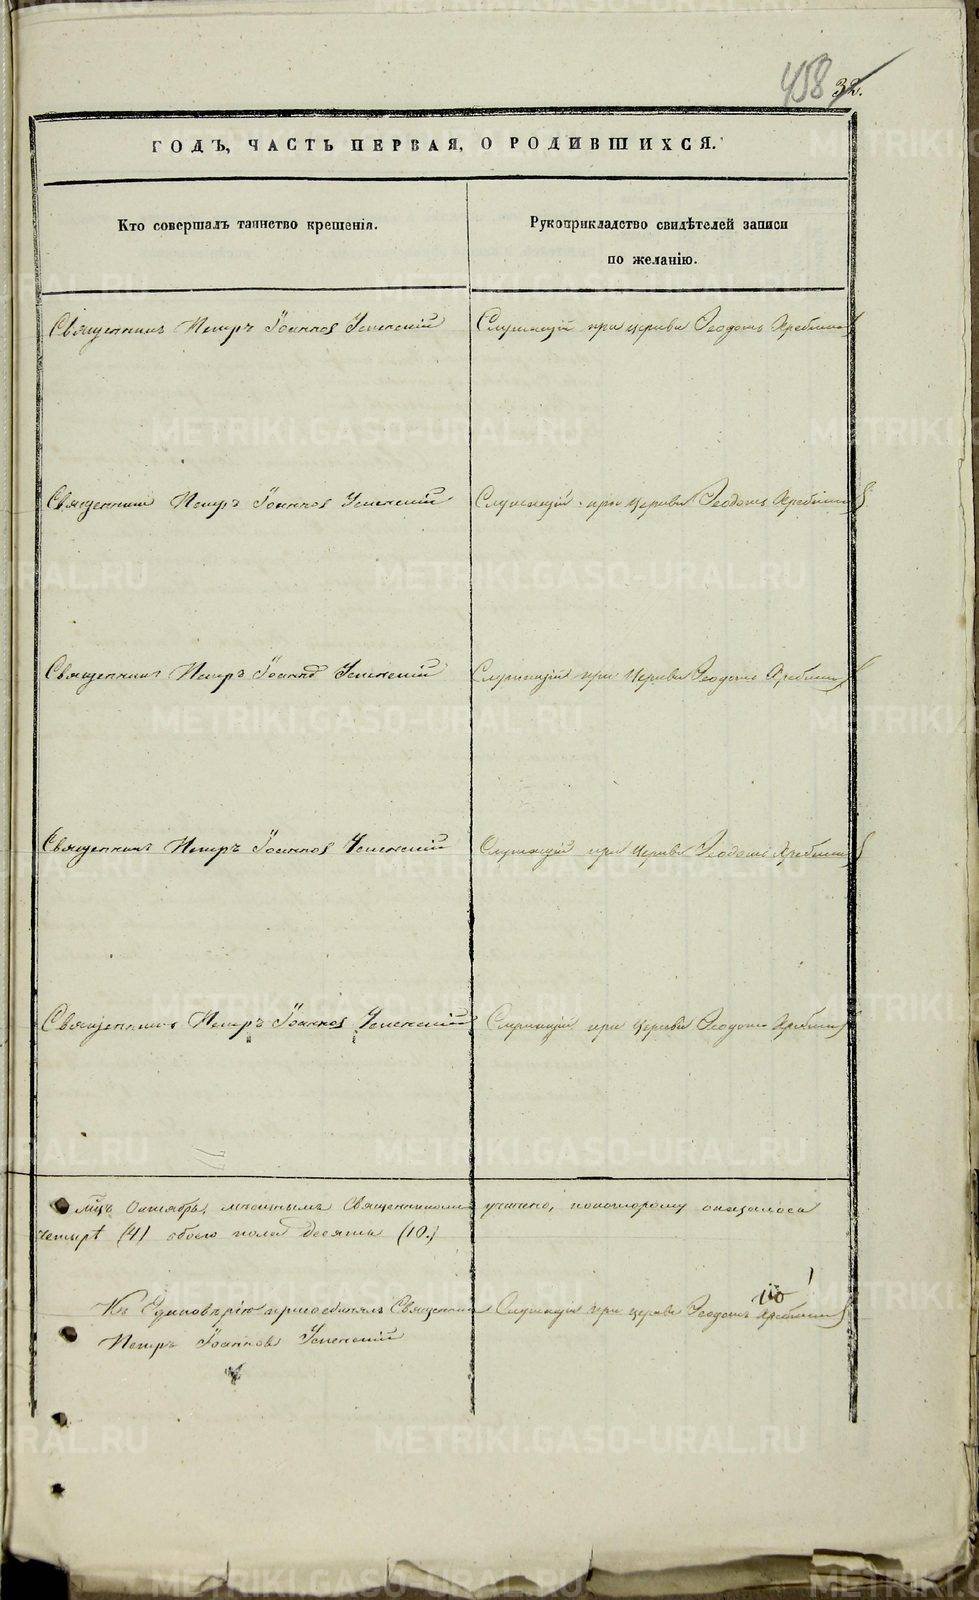 458 32.
ГОДЪ, ЧАСТЬ ПЕРВАЯ, О РОДИВШИХСЯ.
Кто совершалъ таинство крещенія.
Рукоприкладство свидѣтелей записи
по желанію.
Священникъ Петръ Іоанновъ Успенскій
Служащій при церкви Ѳеодотъ
Священникъ Петръ Іоанновъ Успенскій
Служащій при церкви Ѳеодотъ
Священникъ Петръ Іоанновъ Успенскій
Служащій при церкви Ѳеодотъ
Священникъ Петръ Іоанновъ Успенскій
Служащій при церкви Ѳеодотъ
Священникъ Петръ Іоанновъ Успенскій
Служащій при церкви Ѳеодотъ
мцъ Октябрь, мѣстнымъ Священникомъ учинено, по которому оказалось
четыре (4) обоего пола десять (10.)
Къ Единовѣрію присоединялъ Священникъ
Петръ Іоанновъ Успенскій
Служащій при церкви Ѳеодотъ
METRIKI.GASO-URAL.RU